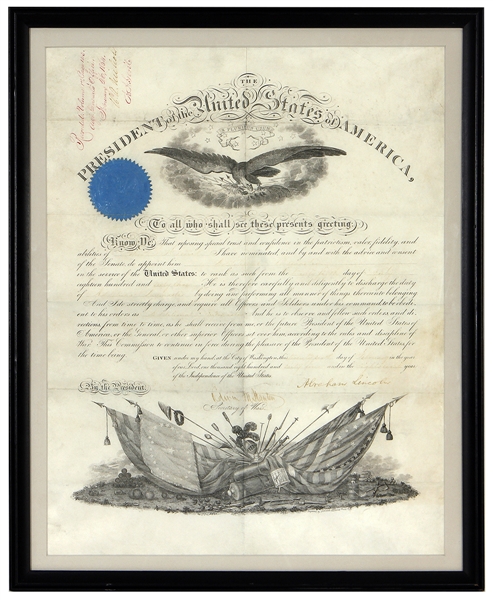 THE
PRESIDENT of the United States of AMERICA,
To all who shall see these presents greeting:
Know Ye, That reposing special trust and confidence in the patriotism, valor, fidelity and
abilities of I have nominated, and by and with the advice and consent
of the Senate do appoint him
in the service of the United States: to rank as such from the day of
eighteen hundred and He is therefore carefully and diligently to discharge the duty
of by doing and performing all manner of things thereunto belonging.
And I do strictly charge, and require all Officers and Soldiers under his command, to be obedi-
ent to his orders as And he is to observe and follow such orders and di-
rections, from time to time, as he shall receive from me, or the future President of the United States of
America, or the General, or other superior Officers set over him, according to the rules and discipline of
War. This Commission to continue in force during the pleasure of the President of the United States for
the time being.
GIVEN under my hand at the City of Washington, this day of in the year
of our Lord one thousand eight hundred and and in the year
of the Independence of the United States.
By the President,
Abraham Lincoln
Edwin M Stanton
Secretary of War.